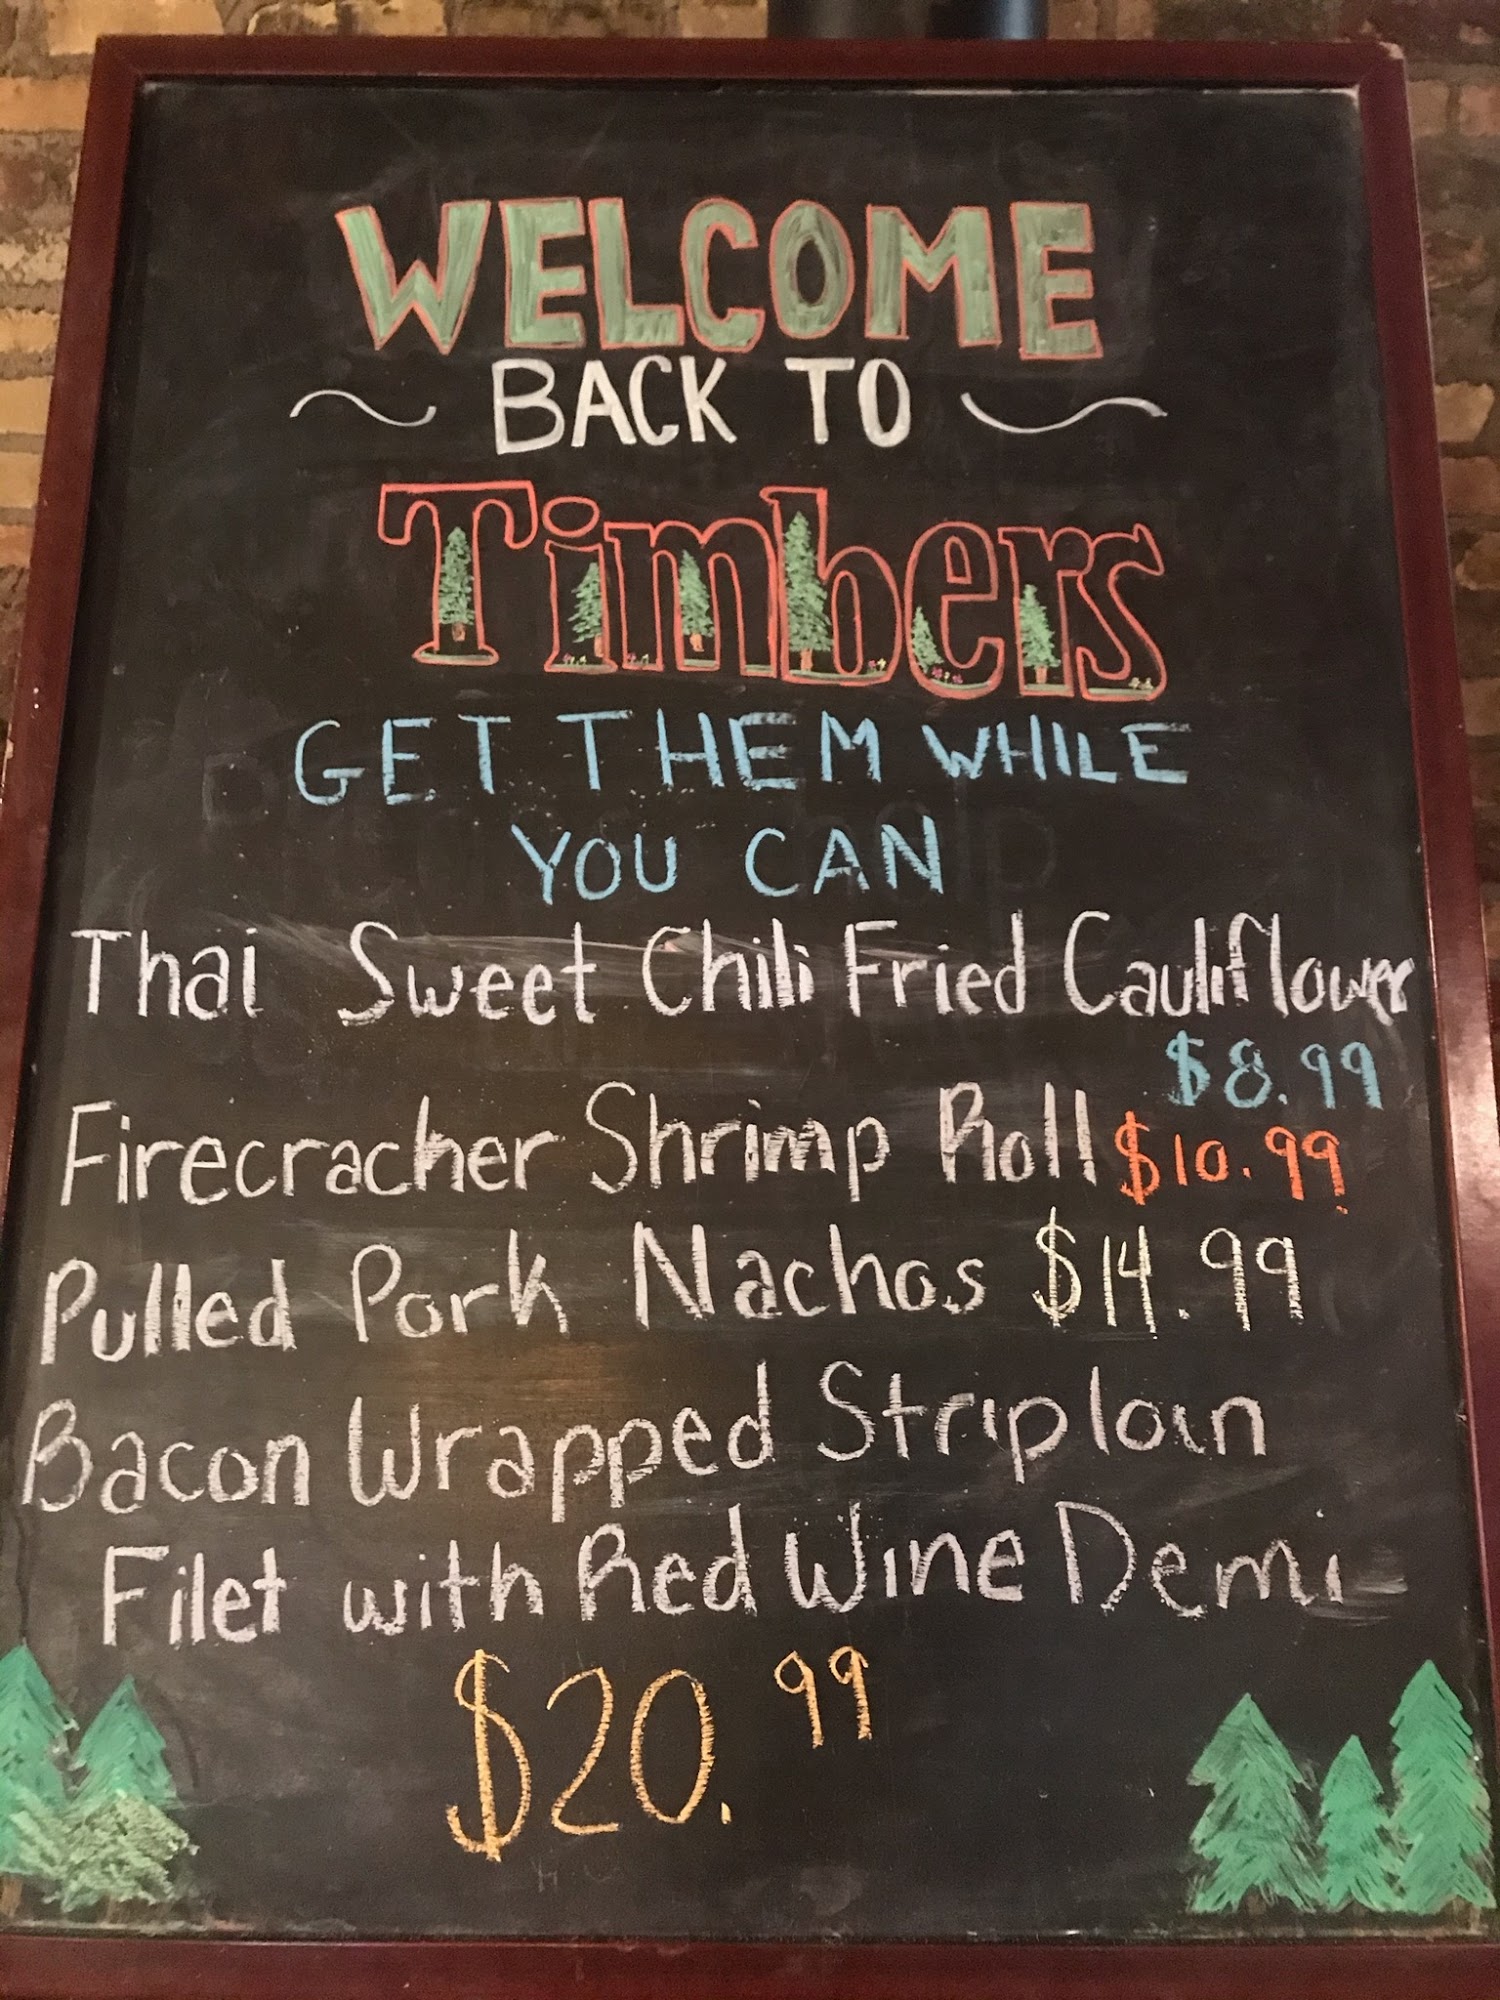 WELCOME
BACK TO
Timbers
GET THEM WHILE
YOU CAN
Thai Sweet Chili Fried Cauliflower
$8.99
Firecracher Shrimp Roll $10.99
Pulled Pork Nachos $14.99
Bacon Wrapped Striploin
Filet with Red Wine Demi
$20.99